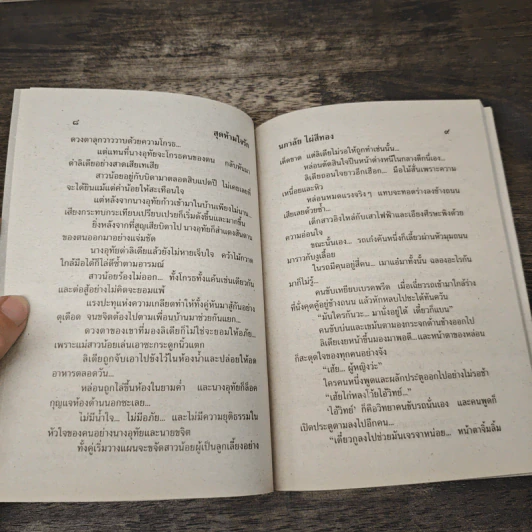 ๘
สุดห้ามใจรัก
ดวงตาลุกวาววาบด้วยความโกรธ...
แต่แทนที่นางอุทัยจะโกรธคนของตน กลับหันมา
ด่าลิเดียอย่างสาดเสียเทเสีย
สาวน้อยอยู่กับบิดามาตลอดสิบแปดปี ไม่เคยเลยที่
จะได้ยินแม้แต่คำน้อยให้สะเทือนใจ
แต่หลังจากนางอุทัยก้าวเข้ามาในบ้านเพียงไม่นาน...
เสียงกระทบกระเทียบเปรียบเปรยก็เริ่มดังขึ้นและมากขึ้น
ยิ่งหลังจากที่สูญเสียบิดาไป นางอุทัยก็สำแดงสันดาน
ของตนออกมาอย่างแจ่มชัด
นางอุทัยด่าลิเดียแล้วยังไม่หายเจ็บใจ คว้าไม้กวาด
ใกล้มือได้ก็ไล่ตีซ้ำตามอารมณ์
สาวน้อยร้องไม่ออก... ทั้งโกรธทั้งแค้นเช่นเดียวกัน
และต่อสู้อย่างไม่คิดจะยอมแพ้
แรงปะทุแห่งความเกลียดทำให้ทั้งคู่หันมาสู้กันอย่าง
ดุเดือด จนขจิตต้องไปตามเพื่อนบ้านมาช่วยกันแยก...
ดวงตาของเขาที่มองลิเดียก็ไม่ใช่จะยอมให้อภัย...
เพราะแม่สาวน้อยเล่นเอาซะกระดูกนิ้วแตก
ลิเดียถูกจับเอาไปขังไว้ในห้องน้ำและปล่อยให้อด
อาหารตลอดวัน...
หล่อนถูกไล่ขึ้นห้องในยามค่ำ และนางอุทัยก็ล็อค
กุญแจห้องด้านนอกซะเลย...
ไม่มีน้ำใจ... ไม่มีอภัย... และไม่มีความยุติธรรมใน
หัวใจของคนอย่างนางอุทัยและนายขจิต
ทั้งคู่เริ่มวางแผนจะขจัดสาวน้อยผู้เป็นลูกเลี้ยงอย่าง
นภาลัย ไผ่สีทอง
๙
เด็ดขาด แต่ลิเดียไม่รอให้ถูกทำเช่นนั้น...
หล่อนตัดสินใจปีนหน้าต่างหนีในกลางดึกนี่เอง...
ลิเดียถอนใจยาวอีกเฮือก... มือไม้สั่นเพราะความ
เหนื่อยและหิว
หล่อนหมดแรงจริงๆ แทบจะทอดร่างลงข้างถนน
เสียเลยด้วยซ้ำ...
เด็กสาวอิงไหล่กับเสาไฟฟ้าและเอียงศีรษะพิงด้วย
ความอ่อนใจ
ขณะนั้นเอง... รถเก๋งคันหนึ่งก็เลี้ยวผ่านหัวมุมถนน
มาราวกับงูเลื้อย
ในรถมีคนอยู่สี่คน... เมาแอ๋มาทั้งนั้น ฉลองอะไรกัน
มาก็ไม่รู้...
คนขับเหยียบเบรคพรืด เมื่อเฉี่ยวรถเข้ามาใกล้ร่าง
ที่นั่งคุดคู้อยู่ข้างถนน แล้วหักหลบไปซะได้ทันควัน
“มันใครกันวะ... มานั่งอยู่ได้ เดี๋ยวก็แบน”
คนขับบ่นและเขม้นตามองกระจกด้านข้างออกไป
ลิเดียเงยหน้าขึ้นมองมาพอดี... และหน้าตาของหล่อน
ก็สะดุดใจของทุกคนอย่างจัง
“เฮ้ย... ผู้หญิงว่ะ”
ใครคนหนึ่งพูดและผลักประตูออกไปอย่างไม่รอช้า
“เฮ้ยไก่หลงโว้ยไอ้วิทย์...”
‘ไอ้วิทย์’ ก็คือวิทยาคนขับรถนั่นเอง และคนพูดก็
เปิดประตูตามลงไปอีกคน...
“เดี๋ยวกูลงไปช่วยมันเจรจาหน่อย... หน้าตาจิ้มลิ้ม